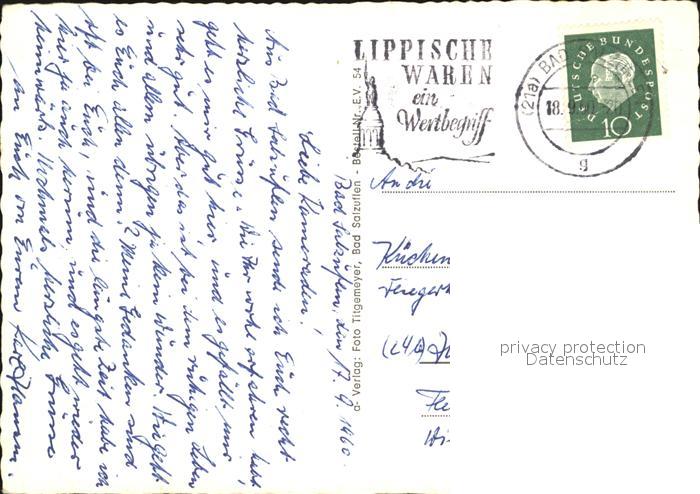 Bad Salzuflen, den 17. 9. 1960.
Liebe Kameraden!
Aus Bad Salzuflen sende ich Euch recht
herzliche Grüsse. Wie Ihr wohl erfahren habt
geht es mir gut hier und es gefällt mir
sehr gut. Aber das ist bei dem ruhigen Leben
und allem übrigen ja kein Wunder. Wie geht
es Euch allen denn? Meine Gedanken sind
oft bei Euch und die längste Zeit habe ich
hier ja auch herum und es geht wieder
heimwärts. Nochmals herzliche Grüsse
an Euch von Eurem
a- Verlag: Foto Titgemeyer, Bad Salzuflen - Bestell-Nr. E.V. 54
LIPPISCHE
WAREN
ein
Wertbegriff
(21a) BAD
18.9.60
g
DEUTSCHE BUNDESPOST
10
An die
Küchen
(24a)
privacy protection
Datenschutz